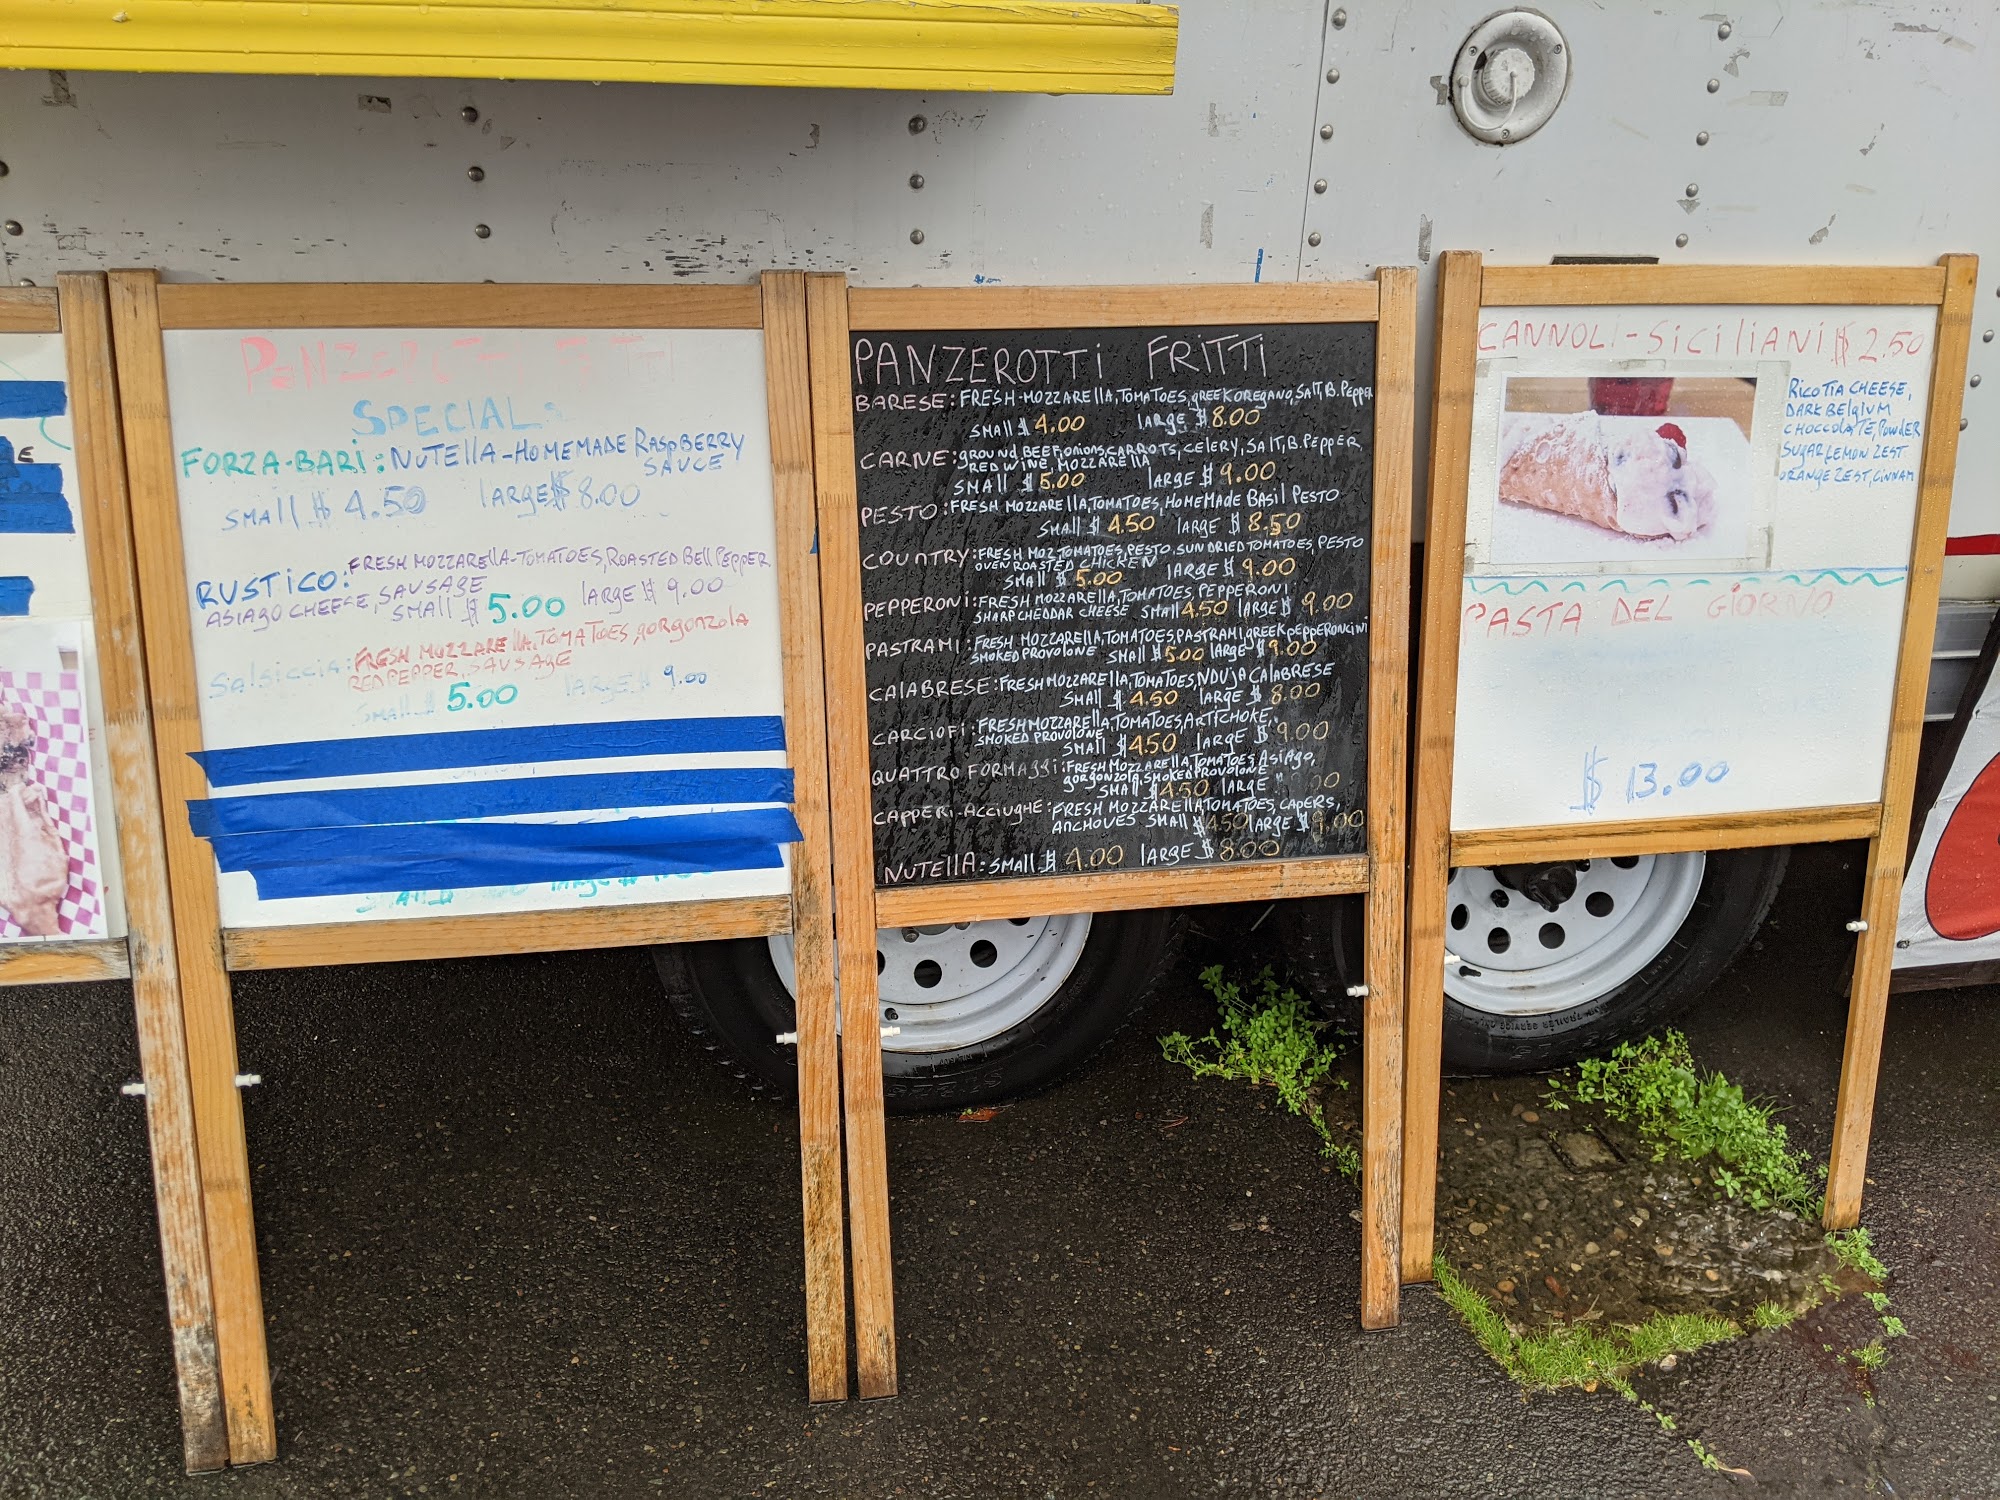 E
PANZEROTTI FRITTI
SPECIAL:
FORZA-BARI: NUTELLA-HOMEMADE RASPBERRY
SAUCE
SMAll $ 4.50 lARgE $ 8.00
FRESH MOZZAREllA-TOMATOES, ROASTED BEll PEPPER
RUSTICO:
ASIAGO CHEESE, SAUSAGE
SMAll $ 5.00 lARgE $ 9.00
SAlSiCCiA: FRESH MOZZAREllA, TOMATOES, gORgONZOlA
RED PEPPER, SAUSAGE
SMAll $ 5.00 lARgE $ 9.00
PANZEROTTi FRiTTi
BARESE: FRESH-MOZZAREllA, TOMATOES, gREEK OREgANO, SAlT, B. PEPPER
SMAll $ 4.00 lARgE $ 8.00
CARNE: gROUND BEEF, ONiONS, CARROTS, CElERY, SAlT, B. PEPPER
RED WiNE, MOZZAREllA
SMAll $ 5.00 lARgE $ 9.00
PESTO: FRESH MOZZAREllA, TOMATOES, HOMEMADE BASil PESTO
SMAll $ 4.50 lARgE $ 8.50
COUNTRY: FRESH MOZ, TOMATOES, PESTO, SUN DRiED TOMATOES, PESTO
OVEN ROASTED CHiCKEN
SMAll $ 5.00 lARgE $ 9.00
PEPPERONi: FRESH MOZZAREllA, TOMATOES, PEPPERONi
SHARP CHEDDAR CHEESE SMAll 4.50 lARgE $ 9.00
PASTRAMi: FRESH MOZZAREllA, TOMATOES, PASTRAMi, gREEK PEPPERONCiNi
SMOKED PROVOlONE SMAll $ 5.00 lARgE $ 9.00
CAlABRESE: FRESH MOZZAREllA, TOMATOES, NDUJA CAlABRESE
SMAll $ 4.50 lARgE $ 8.00
CARCiOFi: FRESH MOZZAREllA, TOMATOES, ARTiCHOKE,
SMOKED PROVOlONE
SMAll $ 4.50 lARgE $ 9.00
QUATTRO FORMAggi: FRESH MOZZAREllA, TOMATOES, ASiAgO,
gORgONZOlA, SMOKED PROVOlONE
SMAll $ 4.50 lARgE
CAPPERi-ACCiUgHE: FRESH MOZZAREllA, TOMATOES, CAPERS,
ANCHOVES SMAll $ 4.50 lARgE $ 9.00
NUTEllA: SMAll $ 4.00 lARgE $ 8.00
CANNOLi-SiCiliANi $ 2.50
RiCOTTA CHEESE,
DARK BElgiUM
CHOCCOlATE, POWDER
SUgAR, lEMON ZEST
ORANgE ZEST, CiNNAM
PASTA DEL GiORNO
$ 13.00